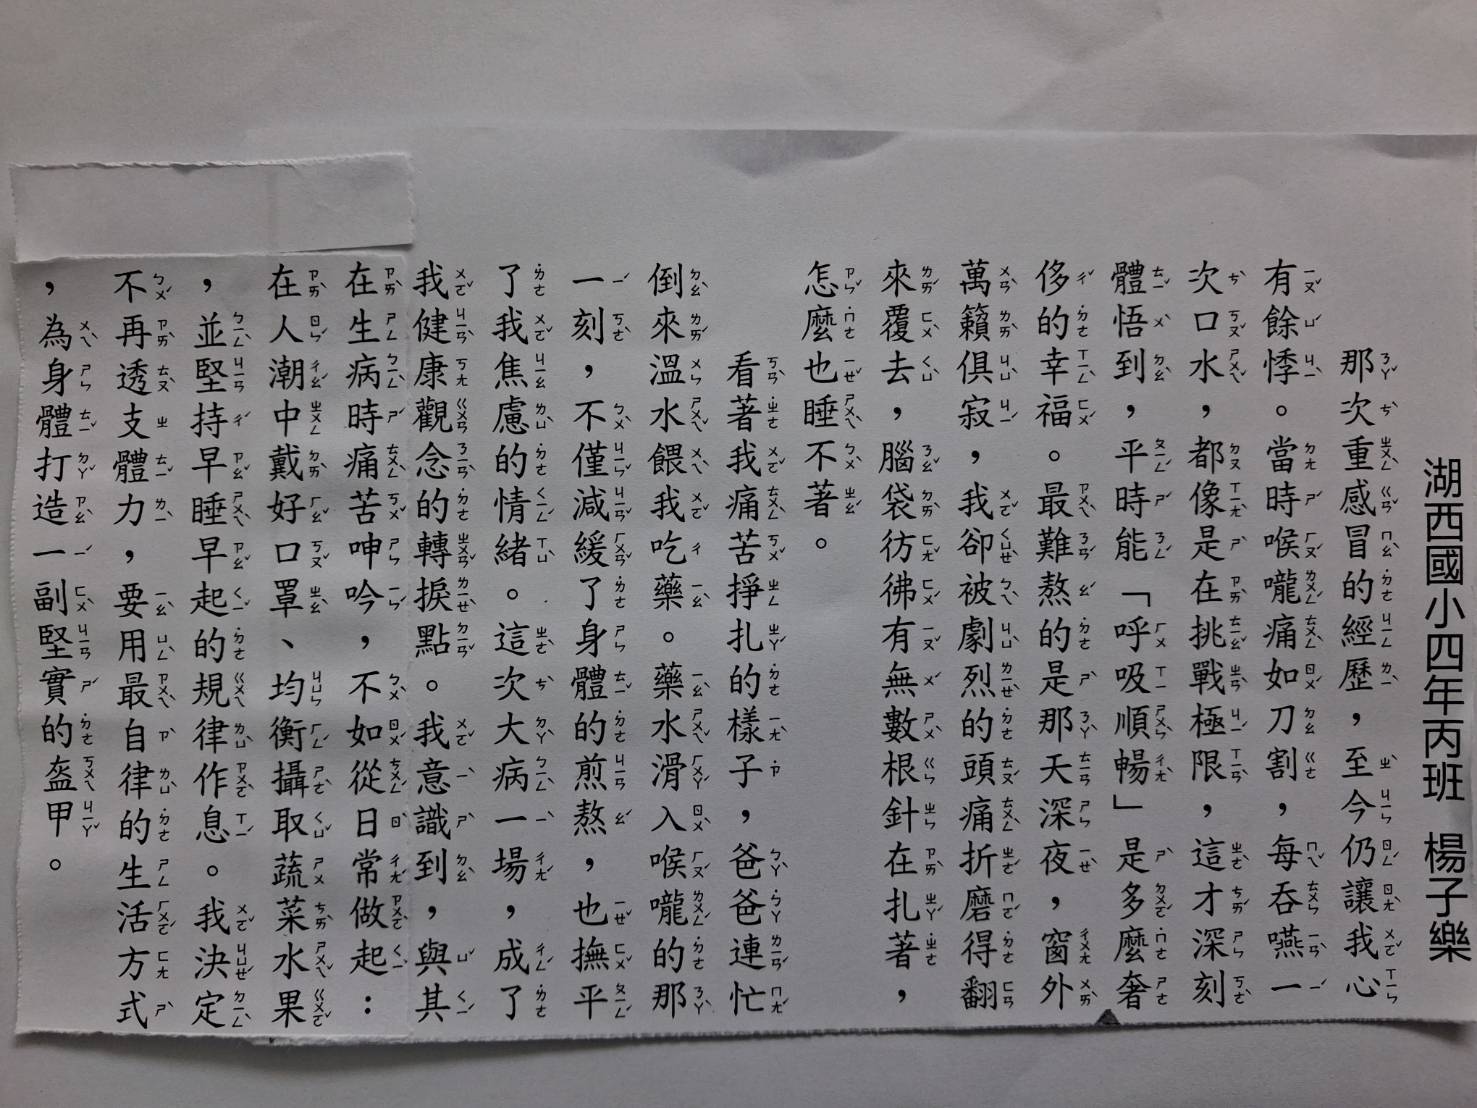 湖西國小四年丙班 楊子樂
那次重感冒的經歷，至今仍讓我心
有餘悸。當時喉嚨痛如刀割，每吞嚥一
次口水，都像是在挑戰極限，這才深刻
體悟到，平時能「呼吸順暢」是多麼奢
侈的幸福。最難熬的是那天深夜，窗外
萬籟俱寂，我卻被劇烈的頭痛折磨得翻
來覆去，腦袋彷彿有無數根針在扎著，
怎麼也睡不著。
看著我痛苦掙扎的樣子，爸爸連忙
倒來溫水餵我吃藥。藥水滑入喉嚨的那
一刻，不僅減緩了身體的煎熬，也撫平
了我焦慮的情緒。這次大病一場，成了
我健康觀念的轉捩點。我意識到，與其
在生病時痛苦呻吟，不如從日常做起：
在人潮中戴好口罩、均衡攝取蔬菜水果
，並堅持早睡早起的規律作息。我決定
不再透支體力，要用最自律的生活方式
，為身體打造一副堅實的盔甲。